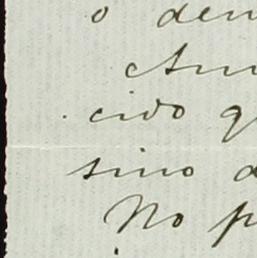 o den
Aun
cido q
sino a
No p